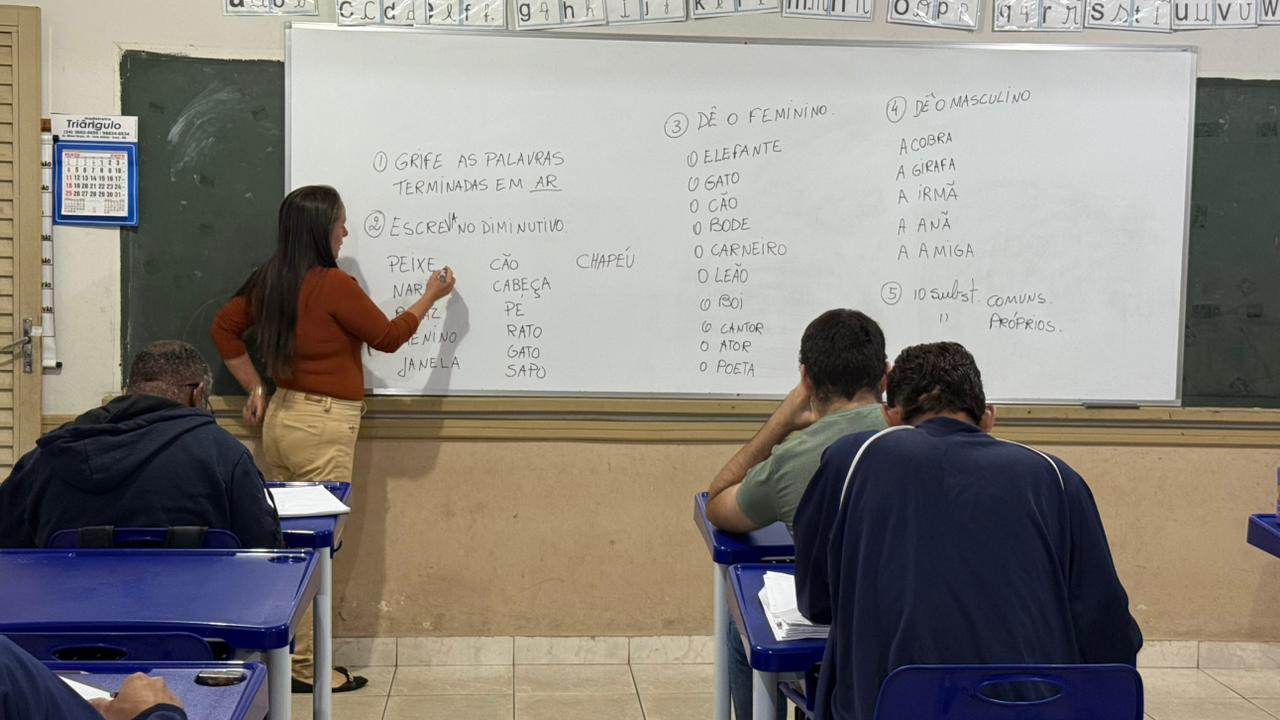 a b
C c d e f
g h i j
k l
m n
O o p
q r r
S s t
u v
W
madeireira
Triângulo
MAIO
① GRIFE AS PALAVRAS
TERMINADAS EM AR
② ESCREVA NO DIMINUTIVO.
PEIXE CÃO CHAPÉU
NAR CABEÇA
PÉ
RATO
GATO
JANELA SAPO
③ DÊ O FEMININO.
O ELEFANTE
O GATO
O CÃO
O BODE
O CARNEIRO
O LEÃO
O BOI
O CANTOR
O ATOR
O POETA
④ DÊ O MASCULINO
A COBRA
A GIRAFA
A IRMÃ
A ANÃ
A AMIGA
⑤ 10 subst. COMUNS.
" PRÓPRIOS.